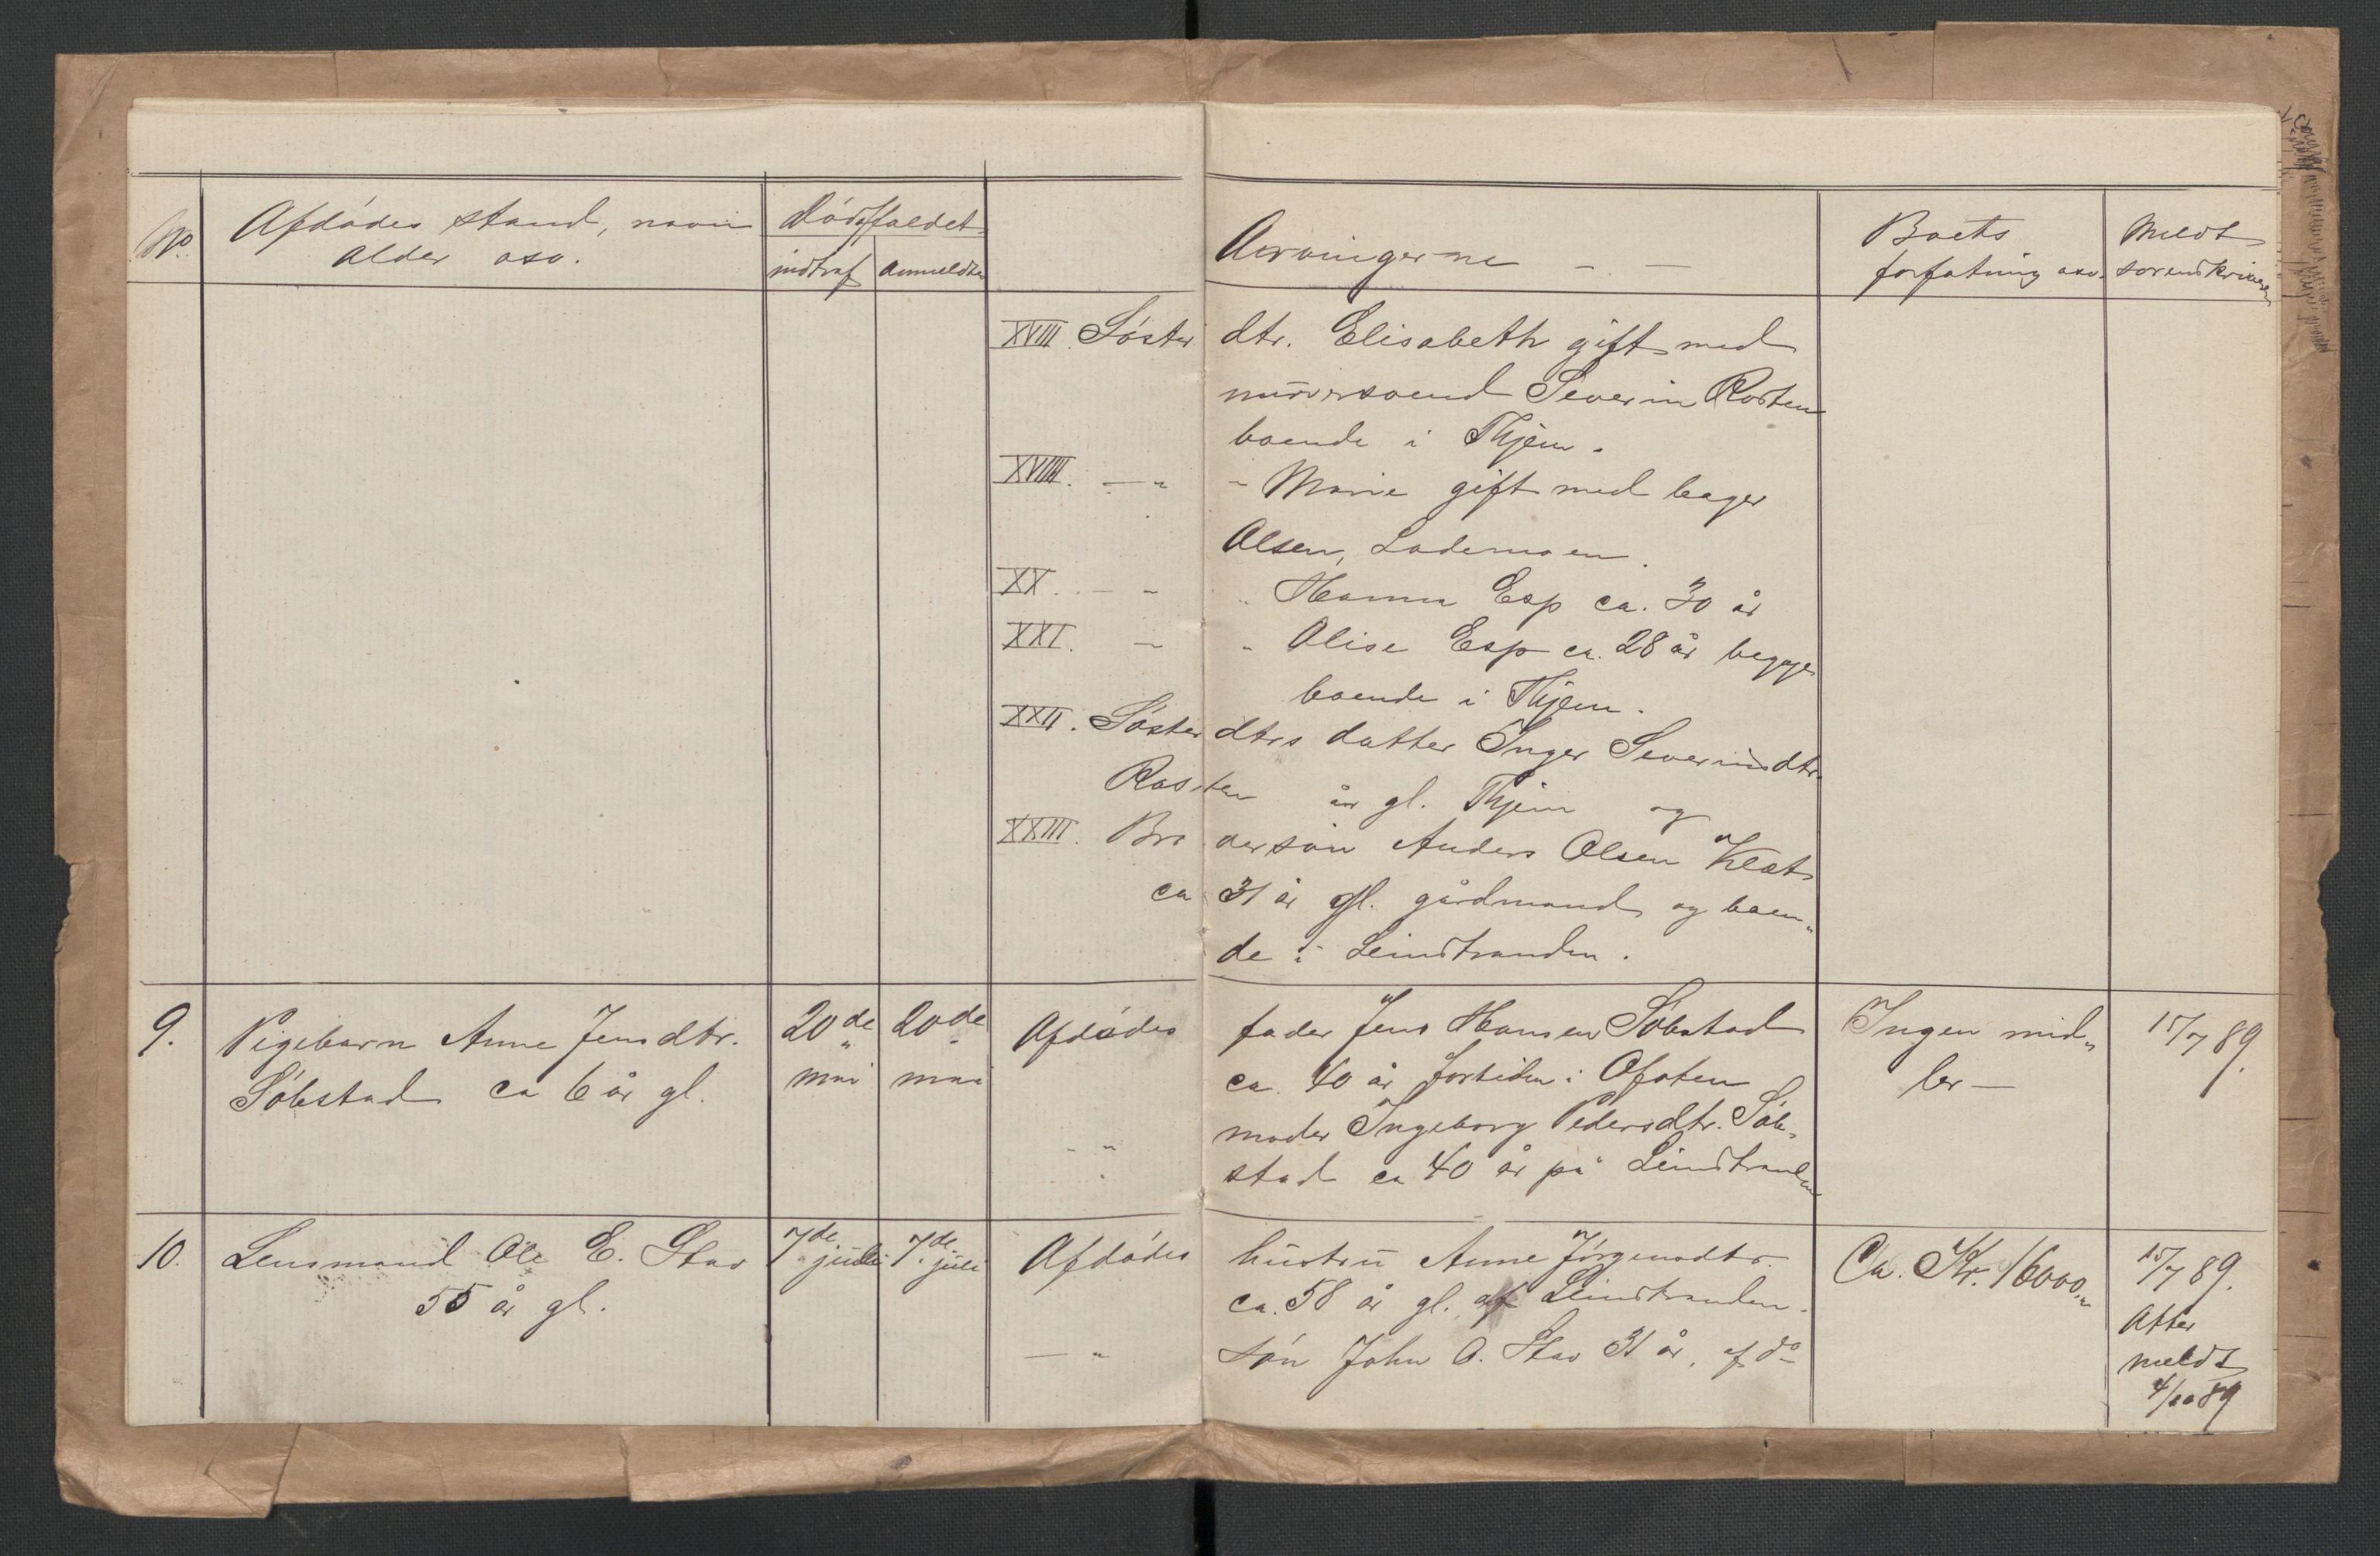 No
Afdödes stand, navn
alder osv.
Dödsfaldet
indtraf anmeldtes
Arvingerne - -
Boets
forfatning osv.
Meldt
sorenskriveren
XVIII. Söster dtr. Elisabeth gift med
murersvend Severin Rosten
boende i Thjem.
XVIIII. — " - Marie gift med bager
Olsen, Lademoen.
XX. - - " Hanna Esp ca. 30 år
XXI. - " Olise Esp ca. 28 år begge
boende i Thjem.
XXII. Söster dtrs datter Inger Severinsdtr.
Rosten år gl. Thjem og
XXIII. Bro dersön Anders Olsen Klet
ca 31 år gl. gårdmand og boen„
de i Leinstranden.
9. Pigebarn Anne Jensdtr. 20de mai 20de mai Afdödes fader Jens Hansen Söbstad Ingen mid„ 15/7 89.
Söbstad ca 6 år gl. ca. 40 år fortiden i Ofoten ler —
- " moder Ingeborg Pedersdtr. Söb„
stad ca 40 år på Leinstranden
10. Lensmand Ole E. Stav 7de juli 7de juli Afdödes hustru Anne Jörgensdtr. Ca. Kr. 16000,„ 15/7 89.
55 år gl. ca. 58 år gl. af Leinstranden. Atter
— " sön John O. Stav 31 år, af do meldt
4/10 89